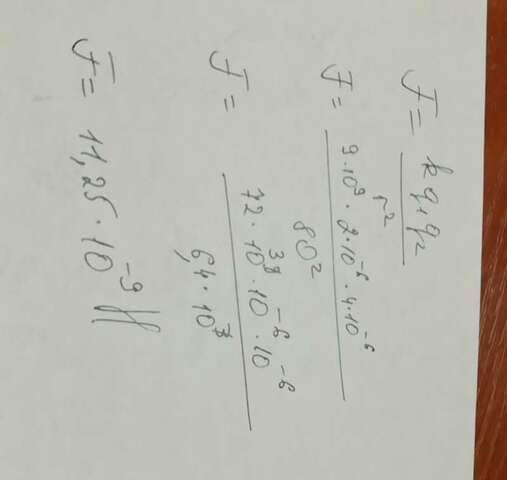 F = kq₁q₂ / r²
F = 9·10⁹·2·10⁻⁶·4·10⁻⁶ / 80²
F = 72·10⁹·10⁻⁶·10⁻⁶ / 6,4·10³
F = 11,25·10⁻⁹ Н